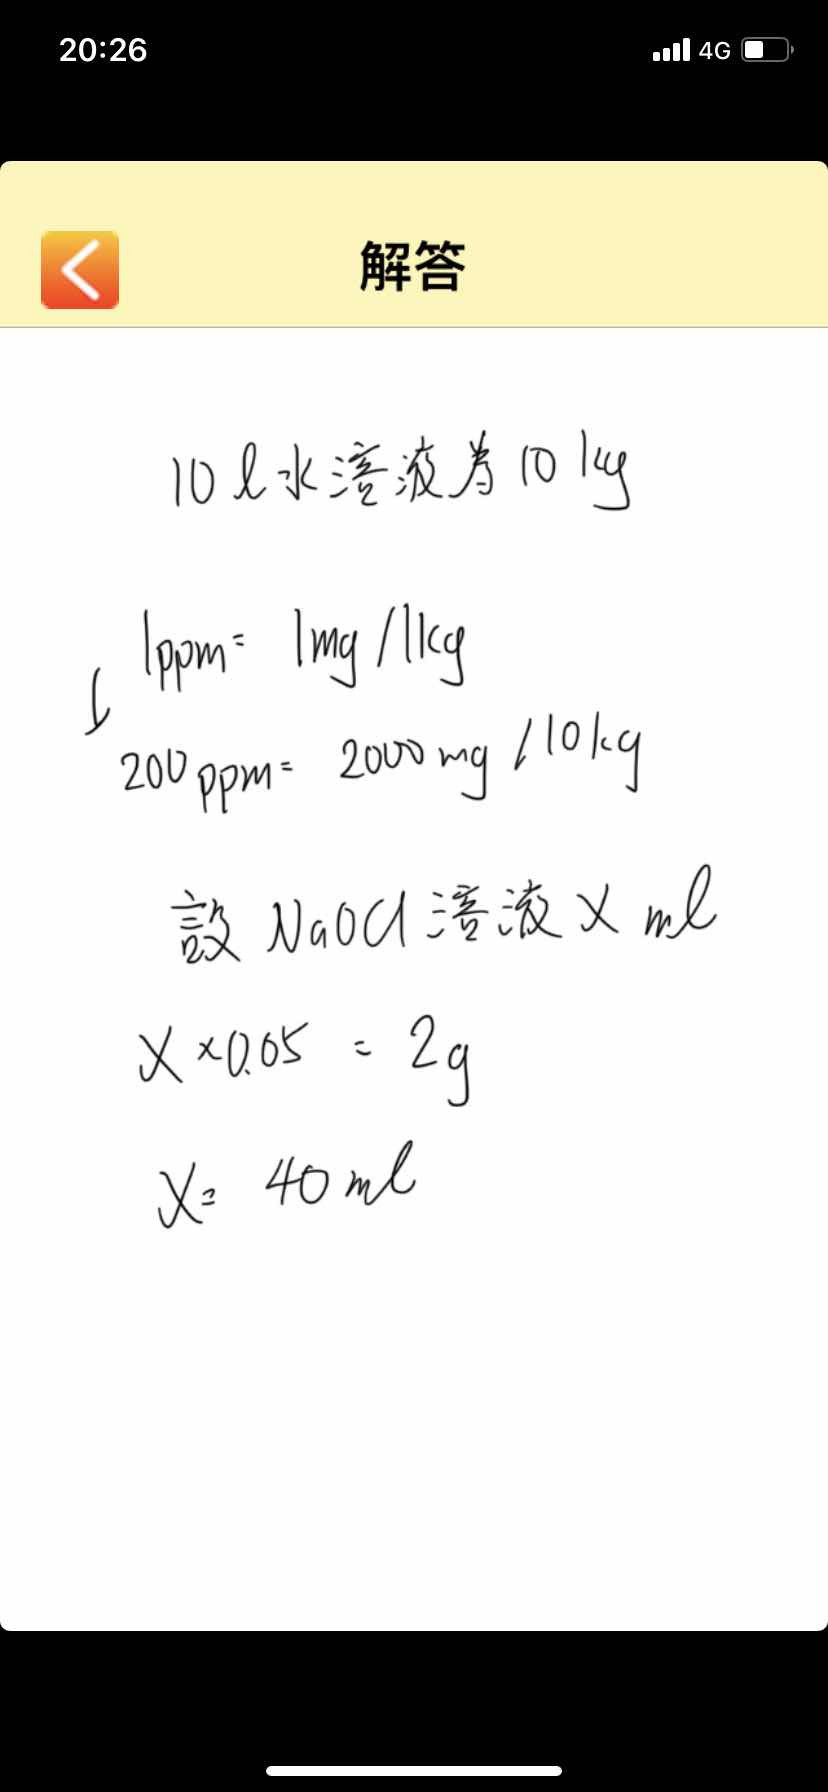 20:26
4G
解答
10 l 水溶液为 10 kg
1ppm = 1mg/1kg
200ppm = 2000mg/10kg
設 NaOCl 溶液 X ml
X × 0.05 = 2g
X = 40 ml